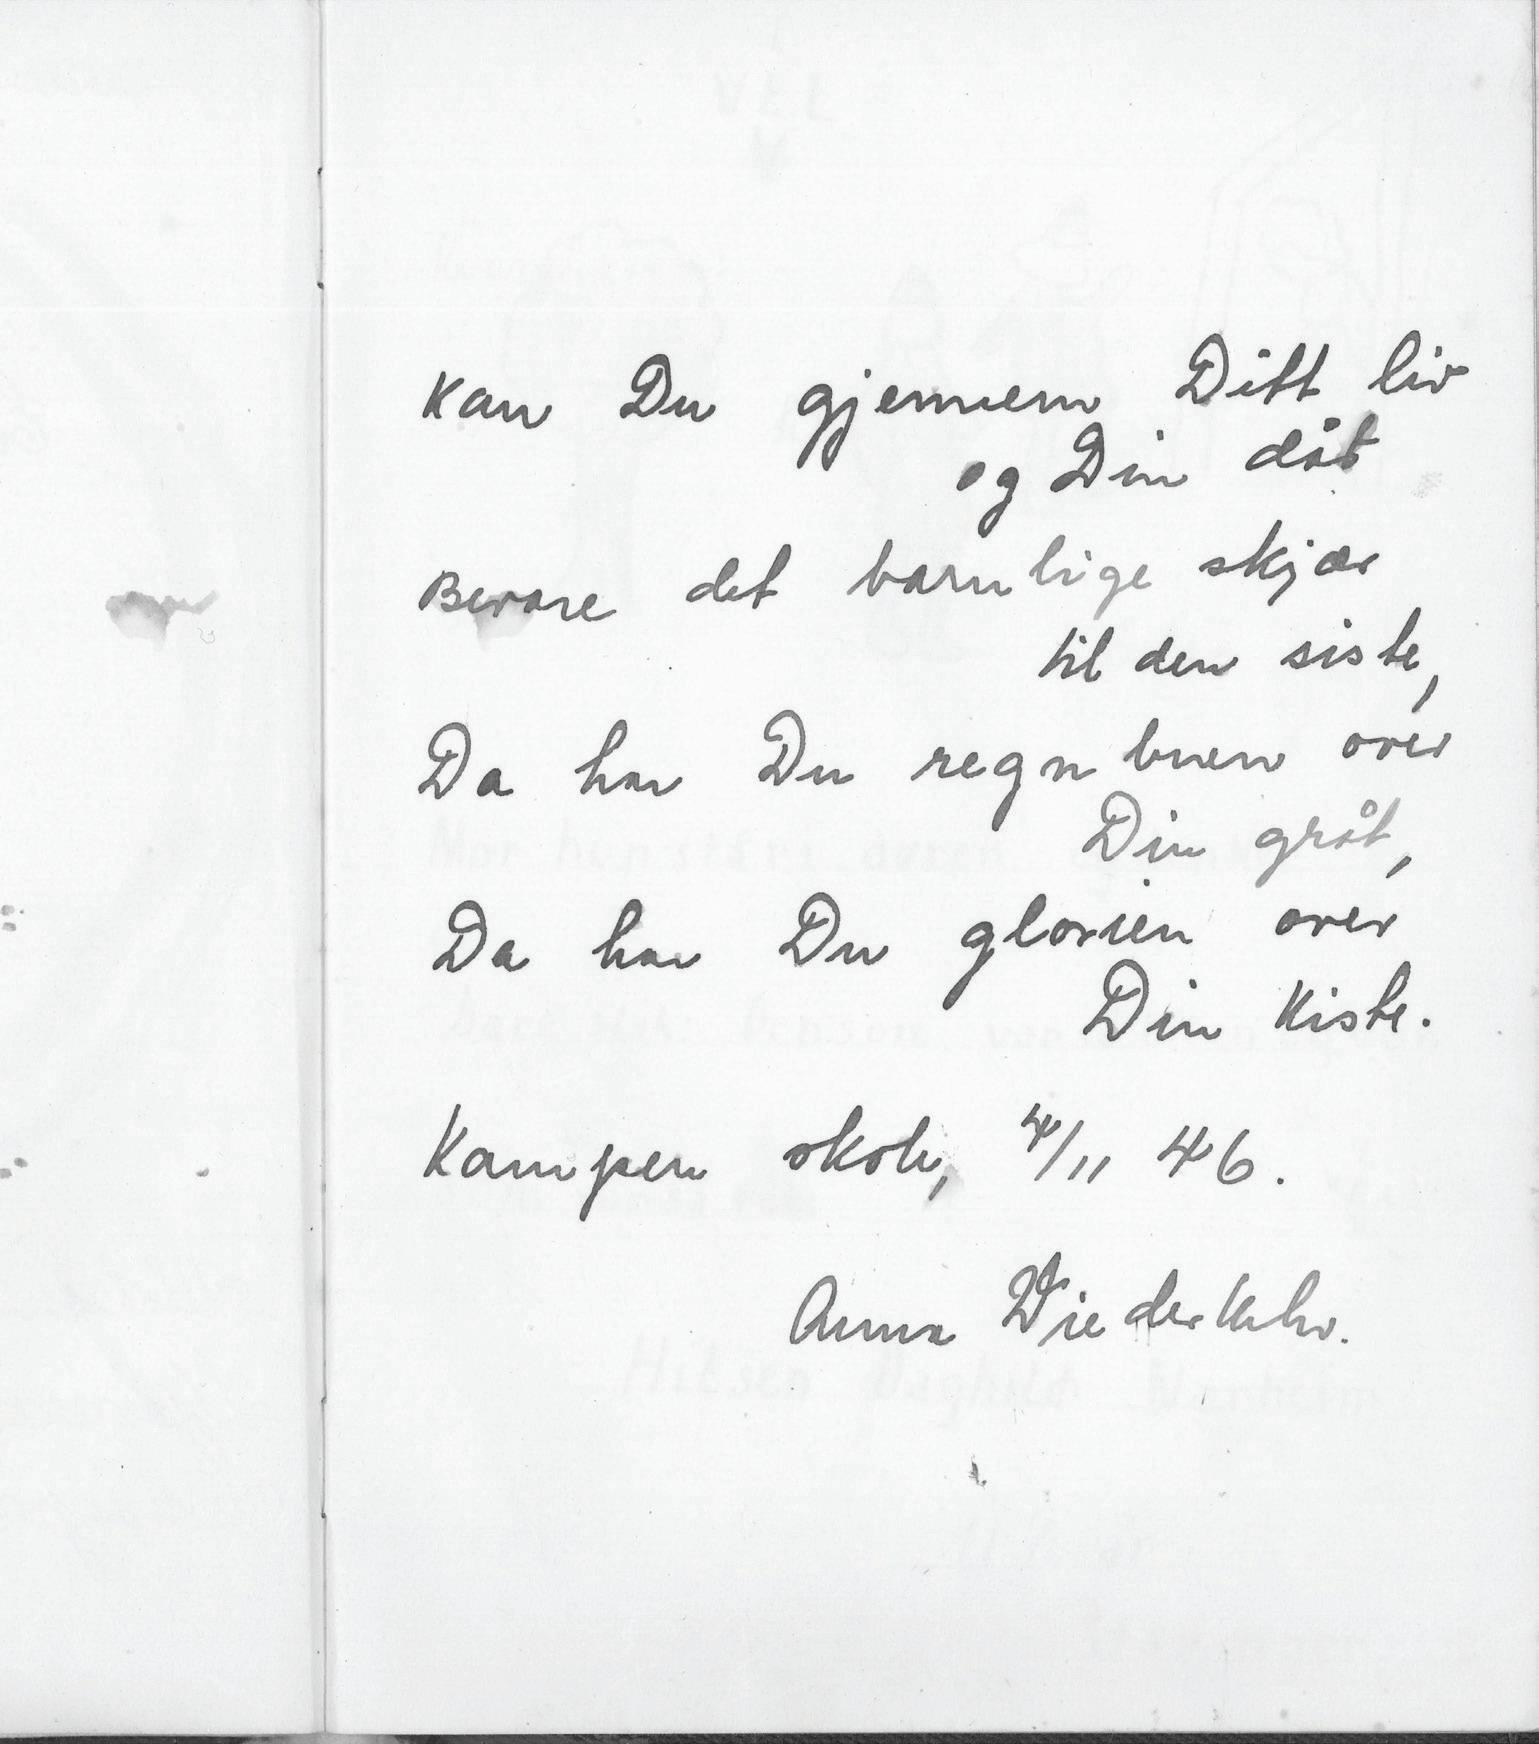 Kan Du gjennem Ditt liv
og Din dåt
Bevare det barnlige skjær
til den siste,
Da har Du regnbuen over
Din gråt,
Da har Du glorien over
Din Kiste.
Kampen skole, 4/11 46.
Anna Wiederkehr.